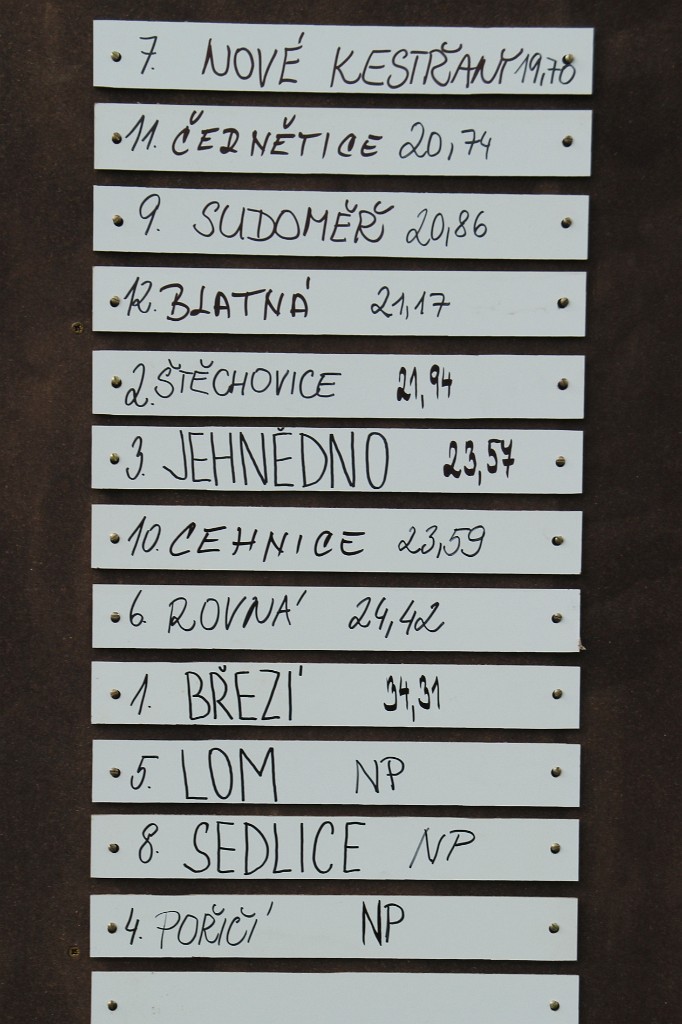 7. NOVÉ KESTŘANY 19,70
11. ČEDNĚTICE 20,74
9. SUDOMĚŘ 20,86
12. BLATNÁ 21,17
2. ŠTĚCHOVICE 21,94
3. JEHNĚDNO 23,57
10. CEHNICE 23,59
6. ROVNÁ 24,42
1. BŘEZÍ 34,31
5. LOM NP
8. SEDLICE NP
4. POŘIČÍ NP